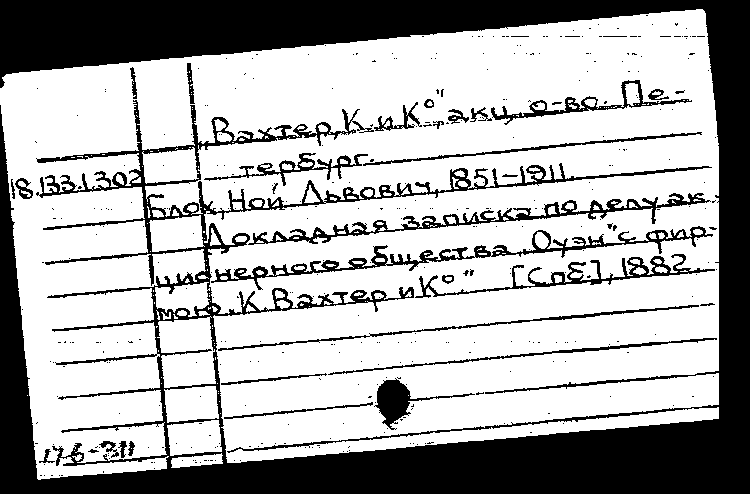 „Вахтер, К. и К°", акц. о-во. Пе-
тербург.
18.133.1.302
Блох, Ной Львович, 1851-1911.
Докладная записка по делу ак-
ционерного общества „Оуэн" с фир-
мою „К. Вахтер и К°." [Спб.], 1882.
176-311